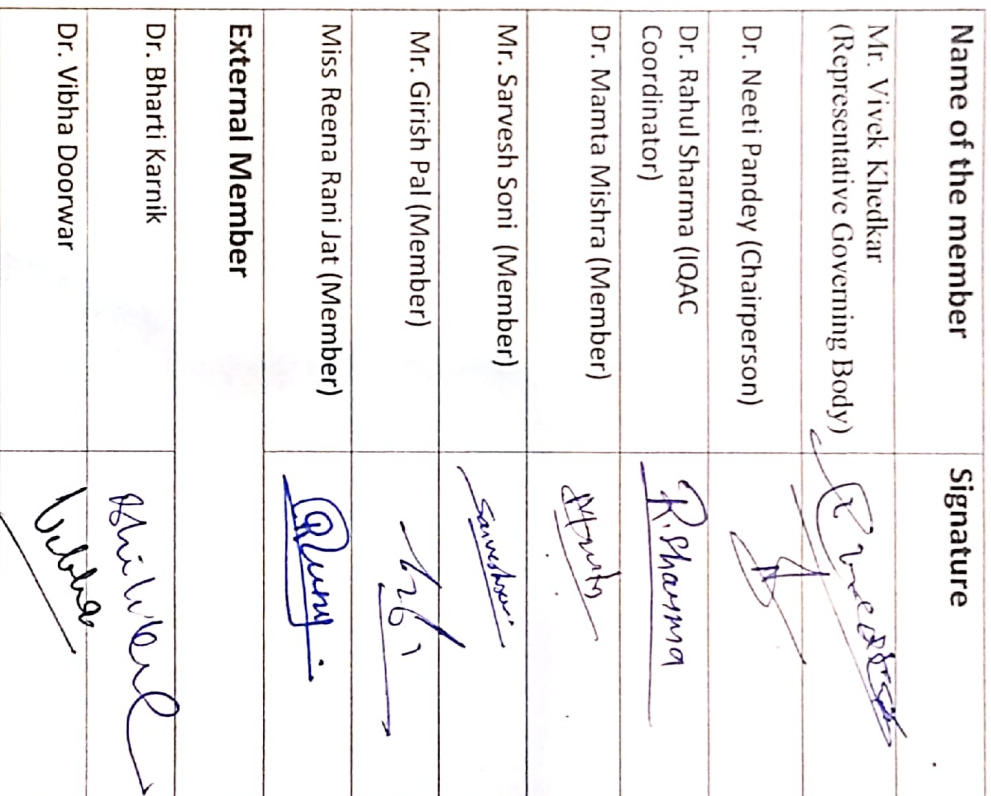 Name of the member Signature
Mr. Vivek Khedkar
(Representative Governing Body)
Dr. Neeti Pandey (Chairperson)
Dr. Rahul Sharma (IQAC R.Sharma
Coordinator)
Dr. Mamta Mishra (Member) Mamta
Mr. Sarvesh Soni (Member)
Mr. Girish Pal (Member)
Miss Reena Rani Jat (Member)
External Member
Dr. Bharti Karnik
Dr. Vibha Doorwar Vibha